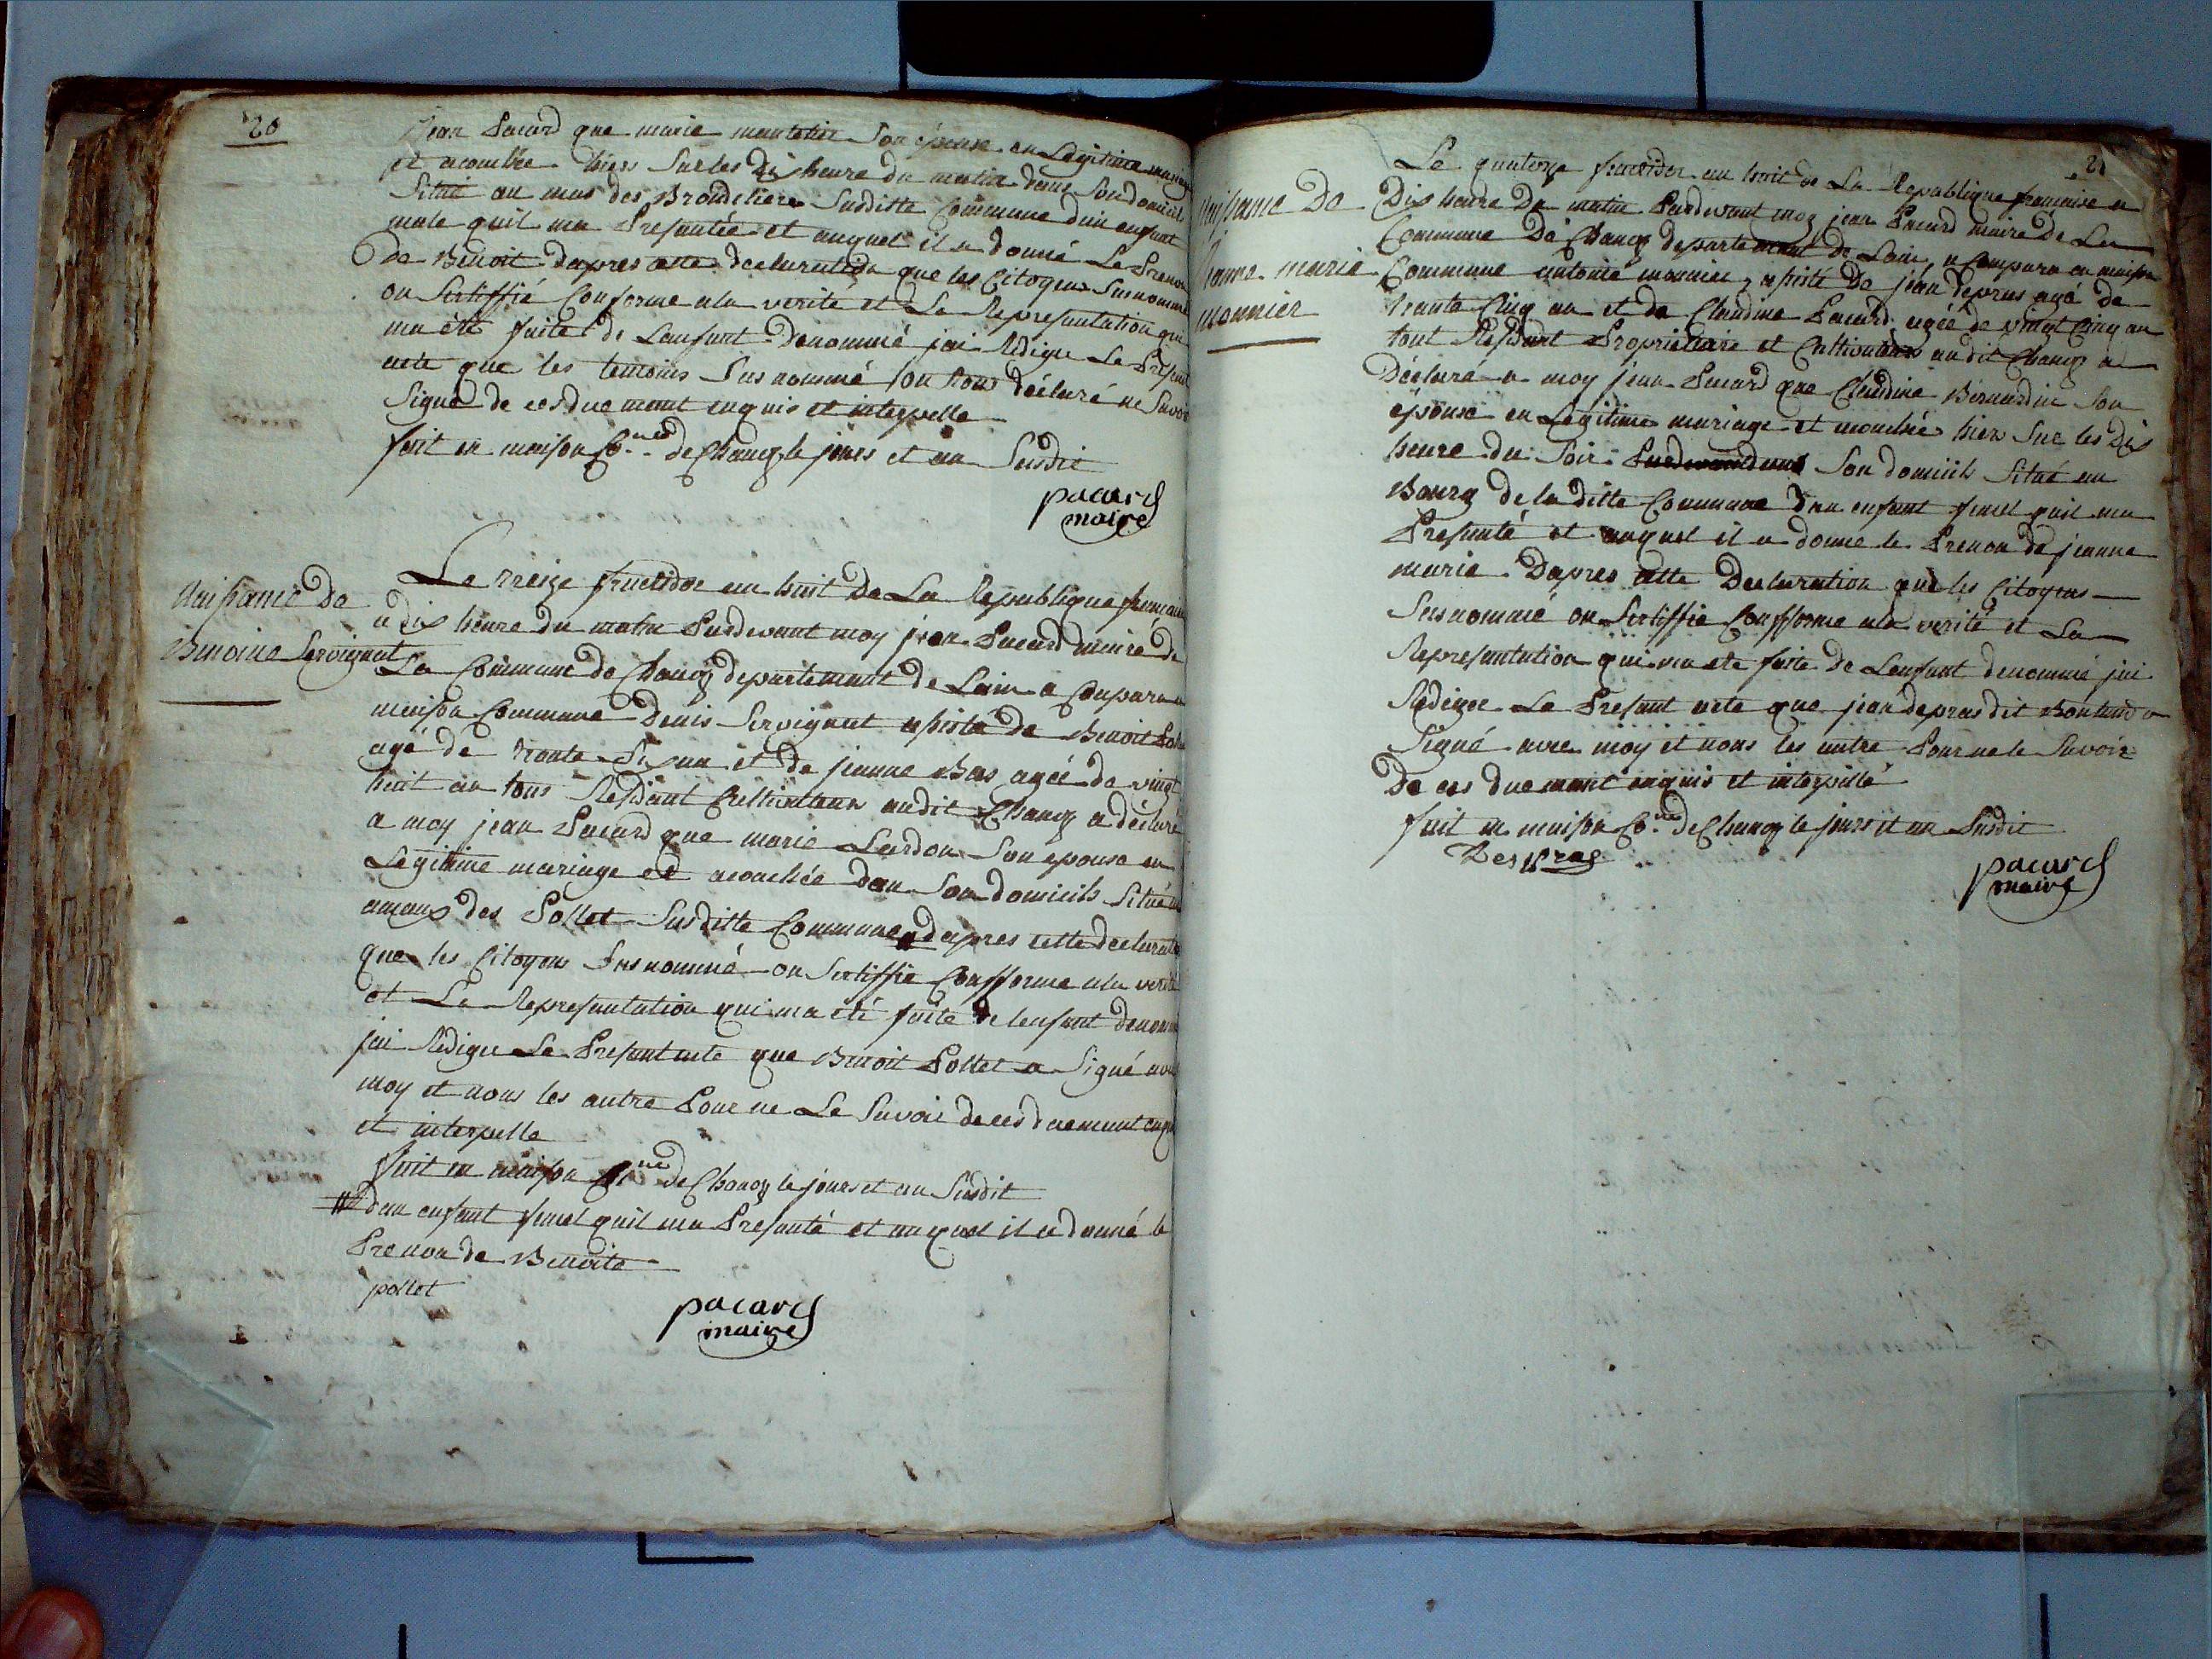 20
jean Pacard que marie mantelier Son épouse en Legitime mariage
et acouchée hiers Sur les dix heure du matin dans Son domicile
Situé au mas des Broudelière Sudditte Commune d'un enfant
male quil ma Presantée et auquel il a donné Le Prenom
de Benoit dapres cette declaration que les Citoyens Susnommé
on Sertiffié Conforme ala verité et La Representation qui
ma été faite de Lanfant denommé jai Rédigé Le Présent
acte que les temoins Sus nommé on tous déclaré ne Savoir
Signé de ces duemant enquis et interpelle
fait en maison Cne de Chanoz le jours et an Susdit
pacard
maire
Naissance de
Benoite Servignat
Le treize fructidor an huit de La Republique francaise
a dix heure du matin Pardevant moy jean Pacard maire de
La Commune de Chanoz departemant de Lain a Conparu en
maison Commune Denis Servignat assisté de Benoit Pollet
agé de trante Six an et de jeanne Bas agée de vingt
huit an tous Residant Cultivateur audit Chanoz a déclaré
a moy jean Pacard que marie Lardon Son épouse en
Legitime mariage est acouchée dan Son domicile Situé
amas des Pollet Susditte Commune # dapres cette declaration
que les Citoyens Susnommé on Sertiffié Confforme ala verité
et La Representation qui ma été faite de lenfant denommé
jai Redigee Le Presant acte que Benoit Pollet a Signé avec
moy et nons les autre Pour ne Le Savoir de ces duemant enquis
et interpelle
fait en maison Cne de Chanoz le jours et an Susdit
# dun enfant femel quil ma Presanté et auquel il a donné le
Prenon de Benoite
pollet
pacard
maire
21
Naissance de
Jeanne marie
monnier
Le quatorze fructidor an huit de La Republique francaise a
Dix heure Du matin Pardevant moy jean Pacard maire de La
Commune De Chanoz departemant de Lain, a Conparu en maison
Commune antoine monnier, assisté De jean depras agé de
trante Cinq an et de Claudine Pacard agée de vingt Cinq an
tout Residant Propriétaire et Cultivateur audit Chanoz a
Déclaré a moy jean Pacard que Claudine Bernardin Son
épouse en Légitime mariage et acouchée hiers Sur les dix
heure du Soir dans Son domicile Situé au
Bourg de la ditte Commune dun enfant femel quil ma
Presanté et auquel il a donne le Prenon de jeanne
marie Dapres cette Declaration que les Citoyens
Susnommé on Sertiffié Confforme ala verité et La
Representation qui ma été faite de Lenfant denommé jai
Rediger Le Presant acte que jean depras dit Bontand a
Signé avec moy et nons les autre Pour ne le Savoir
De ces duemant enquis et interpellé
fait en maison Cne de Chanoz le jours et an Susdit
Despras
pacard
maire